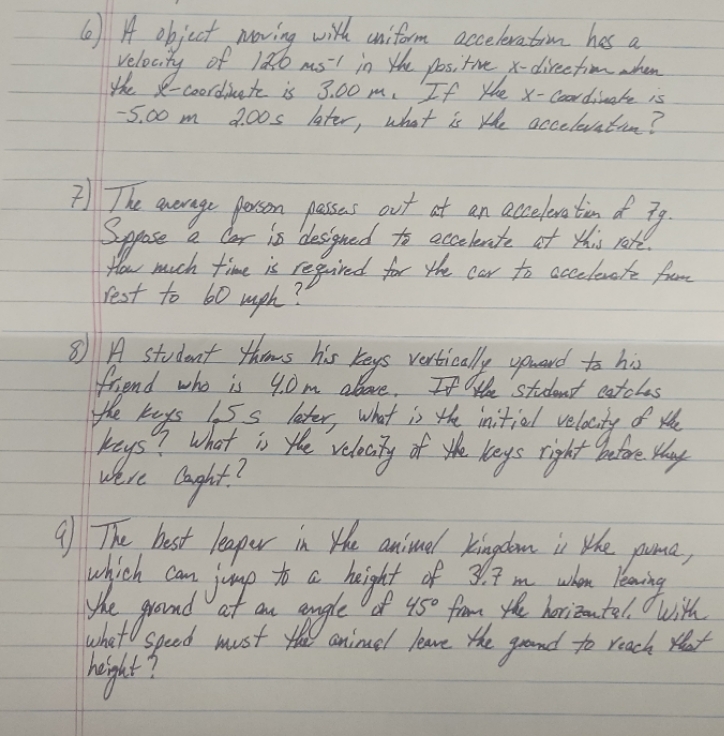 6) A object moving with uniform acceleration has a
velocity of 12.0 ms⁻¹ in the positive x-direction when
the x-coordinate is 3.00 m. If the x-coordinate is
-5.00 m 2.00s later, what is the acceleration?
7) The average person passes out at an acceleration of 7g.
Suppose a car is designed to accelerate at this rate.
How much time is required for the car to accelerate from
rest to 60 mph?
8) A student throws his keys vertically upward to his
friend who is 4.0 m above. If the student catches
the keys 1.5 s later, what is the initial velocity of the
keys? What is the velocity of the keys right before they
were caught?
9) The best leaper in the animal kingdom is the puma,
which can jump to a height of 3.7 m when leaving
the ground at an angle of 45° from the horizontal. With
what speed must the animal leave the ground to reach that
height?